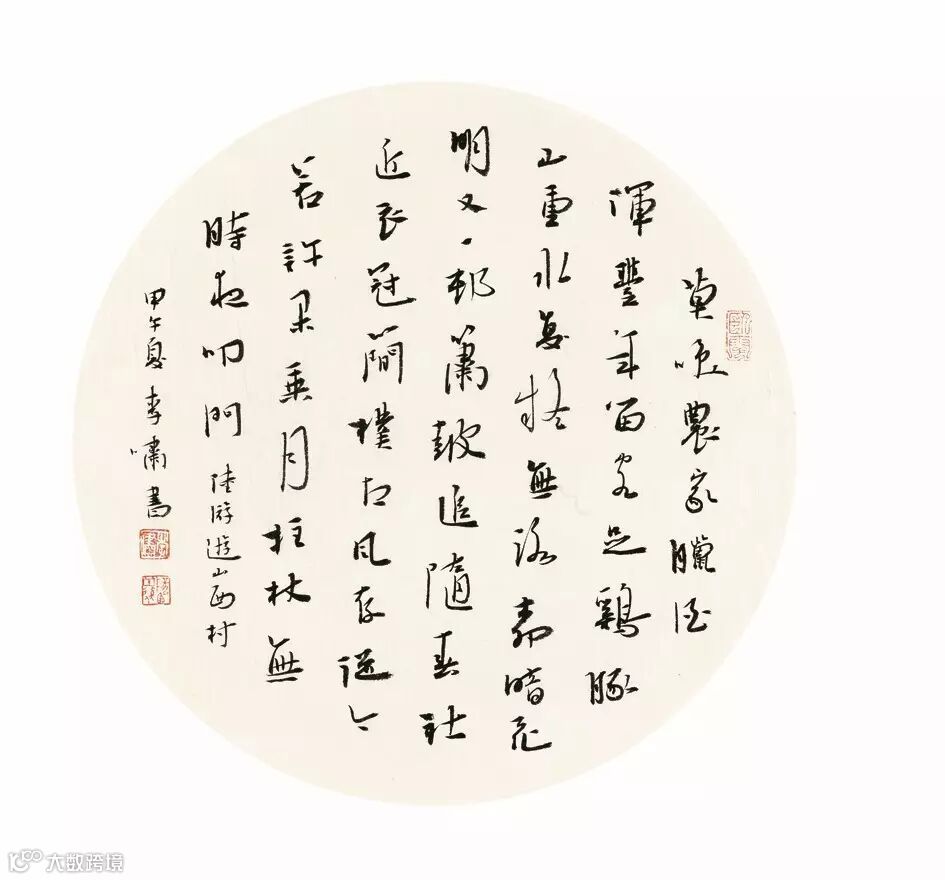 莫咲農家臘酒
渾豐年留客足鷄豚
山重水复疑無路柳暗花
明又一邨簫鼓追隨春社
近衣冠簡樸古風存從今
若許閑乘月拄杖無
時夜叩門 陸游遊山西村
甲午夏李嘯書
大数跨境